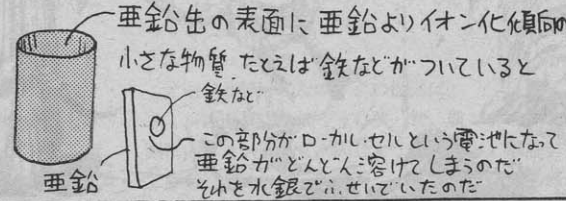 亜鉛缶の表面に亜鉛よりイオン化傾向の
小さな物質 たとえば鉄などがついていると
鉄など
この部分がローカル・セルという電池になって
亜鉛がどんどん溶けてしまうのだ
それを水銀でふせいでいたのだ
亜鉛